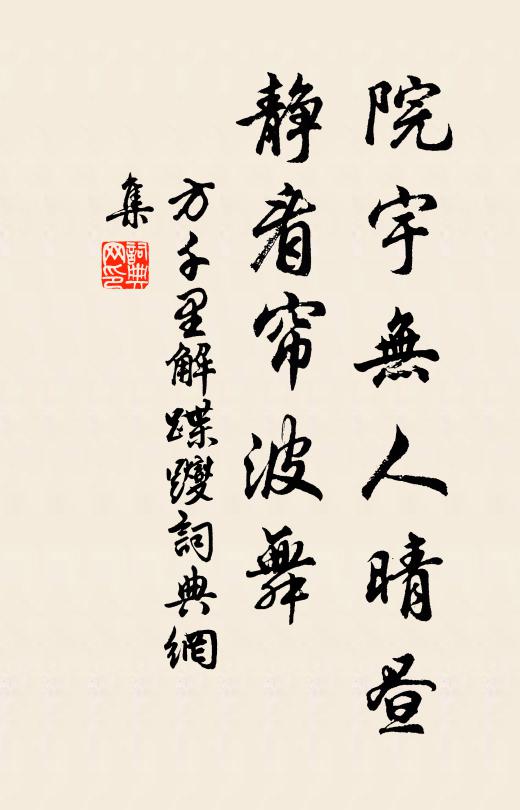 院宇無人晴昼
静看帘波舞
方千里解蹀躞詞典網
集
詞典网印